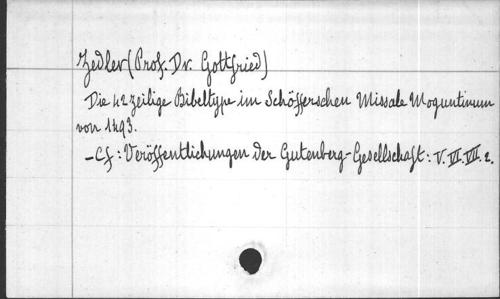 Zedler (Prof. Dr. Gottfried)
Die 42 zeilige Bibeltype im Schöfferschen Missale Moguntinum
von 1493.
- Cf: Veröffentlichungen der Gutenberg-Gesellschaft: V. VI. VII. 2.